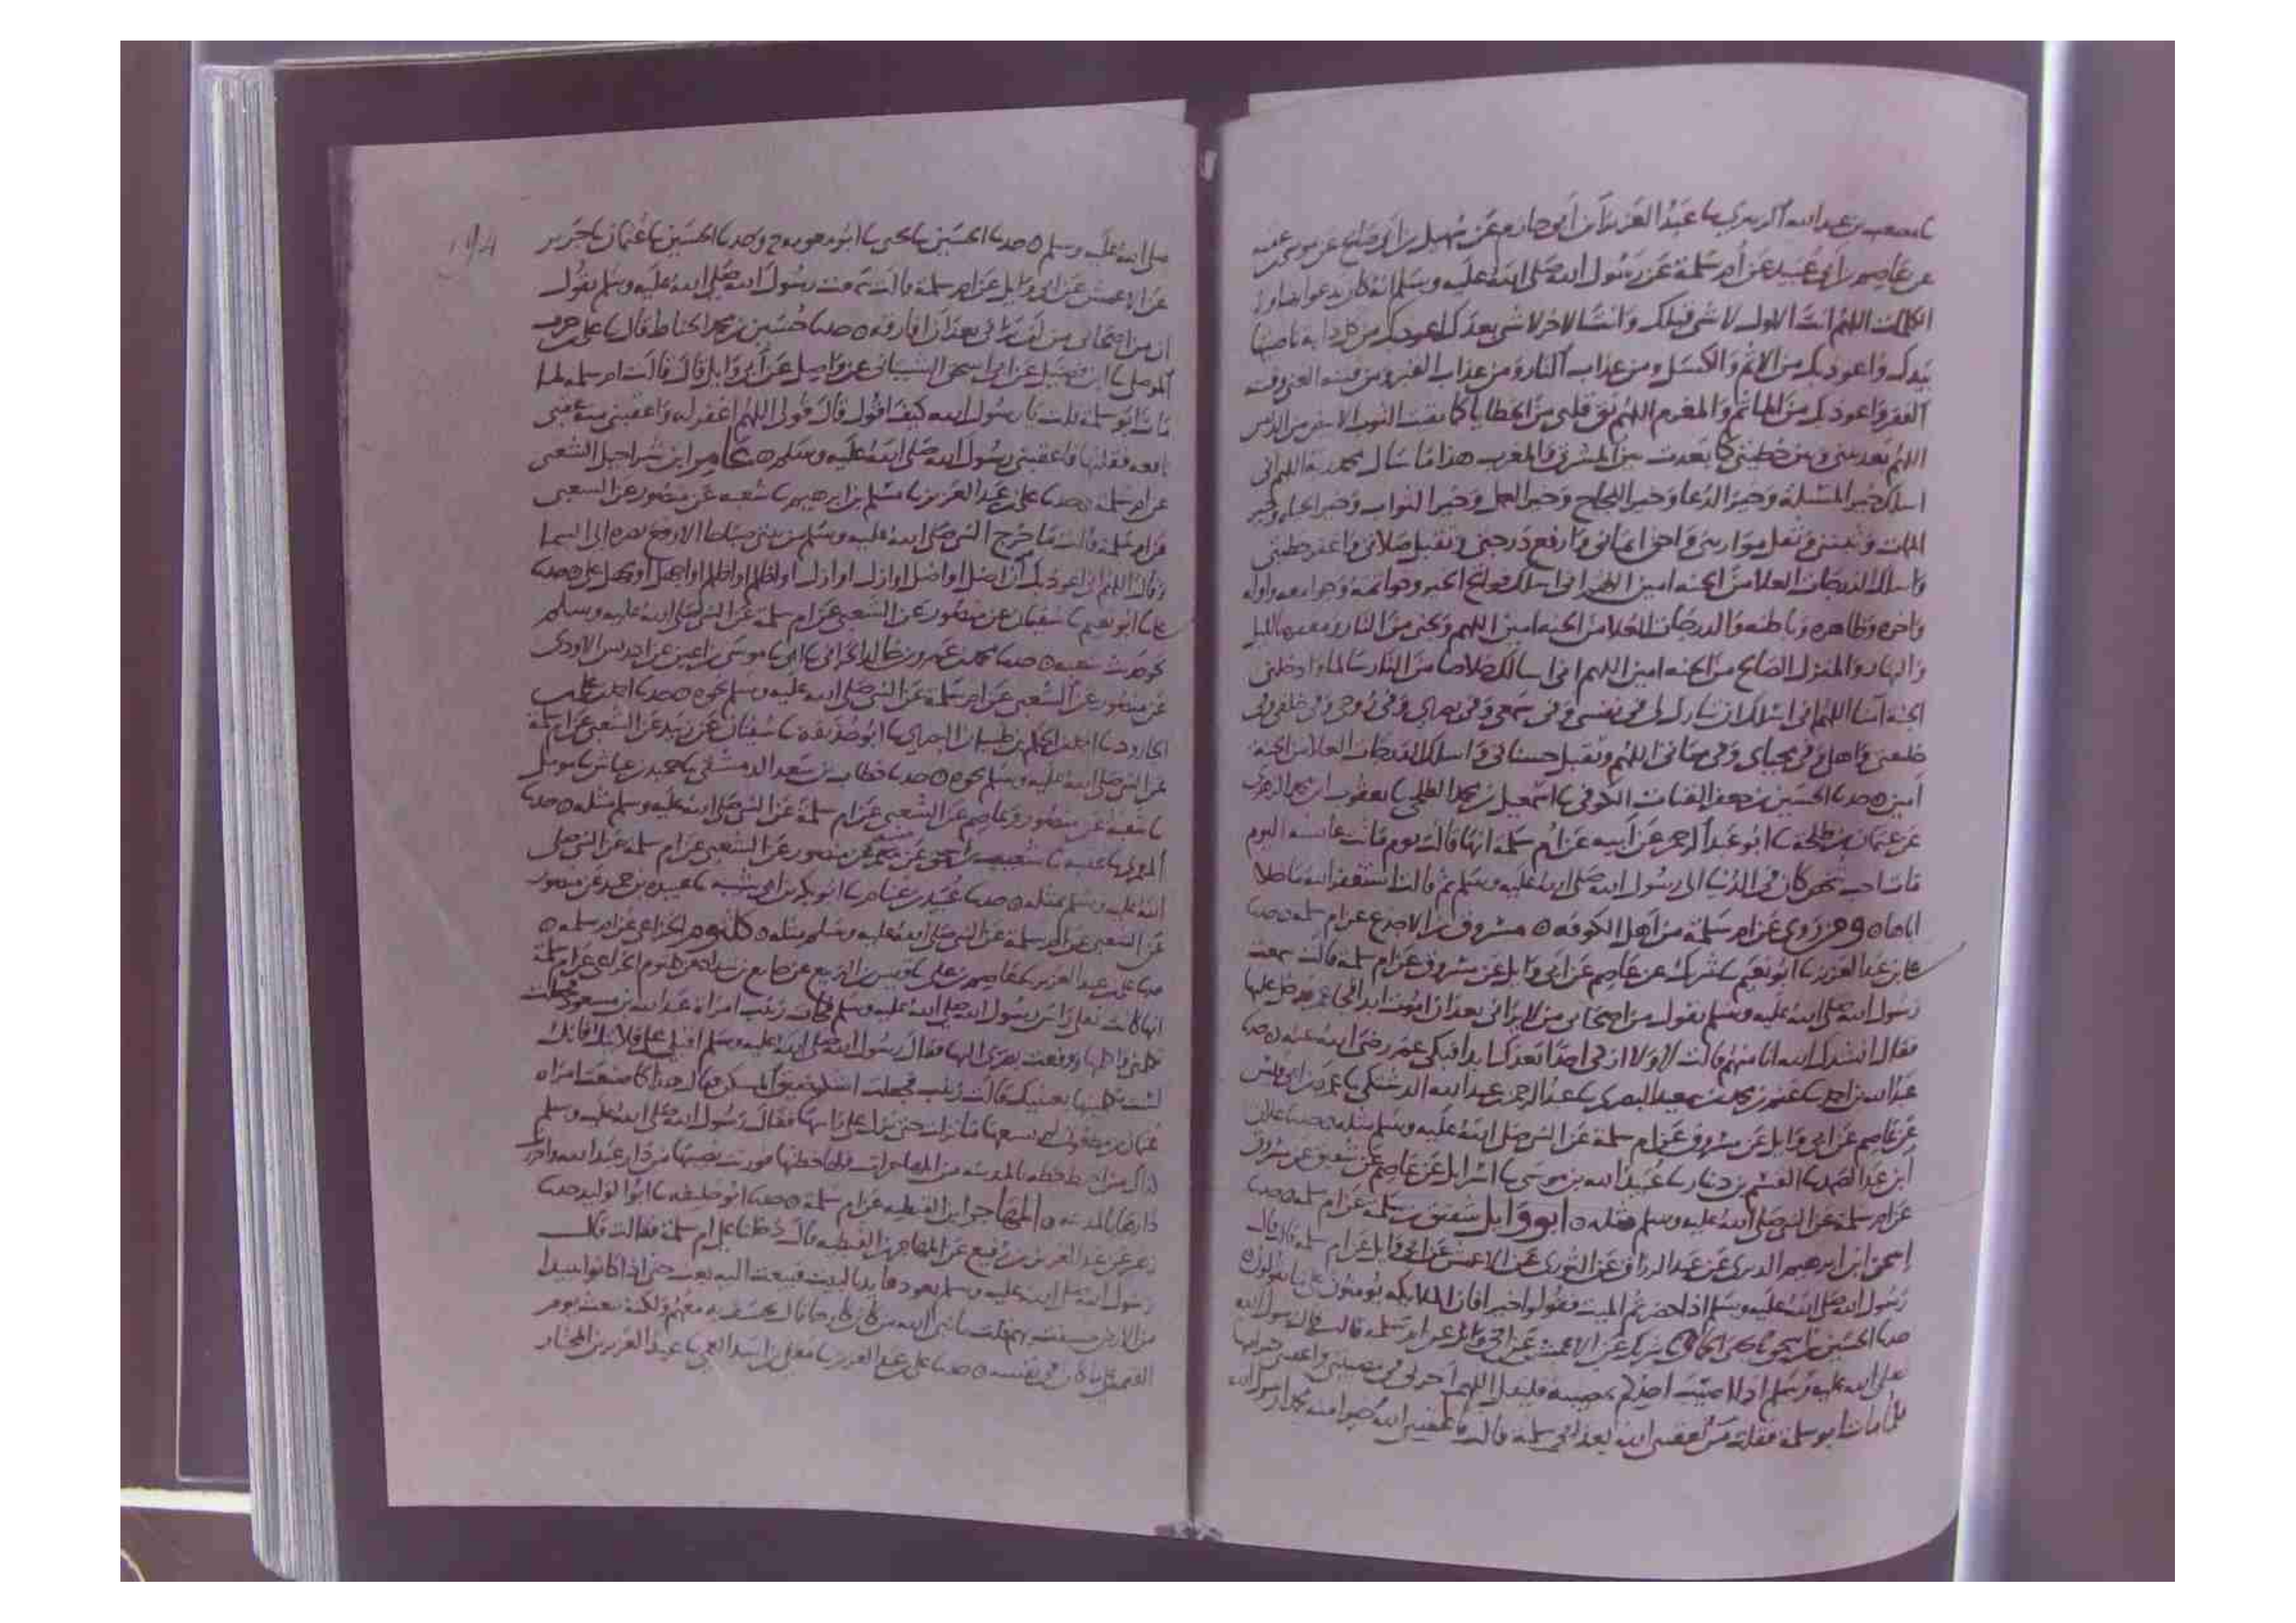 نا مصعب بن عبد الله الزبيري نا عبد العزيز ابن ابي حازم عن سهيل بن ابي صالح عن موسى بن عقبه
عن عاصم بن ابي عبيد عن ام سلمة عن رسول الله صلى الله عليه وسلم انه كان يدعوا
الكلمات اللهم انت الاول لا شي قبلك وانت الاخر لا شي بعدك اعوذ بك من كل دابه ناصيتها
بيدك واعوذ بك من الاثم والكسل ومن عذاب النار ومن عذاب القبر ومن فتنه الغنى وفتنه
الفقر واعوذ بك من الماثم والمغرم اللهم نق قلبي من الخطايا كما نقيت الثوب الابيض من الدنس
اللهم بعد بيني وبين خطيتي كما بعدت بين المشرق والمغرب هذا ما سال محمد ربه اللهم اني
اسلك خير المسئلة وخير الدعا وخير النجاح وخير العمل وخير الثواب وخير الحياه وخير
الممات وثبتني وثقل موازيني واحق ايماني وارفع درجتي وتقبل صلاتي واغفر خطيتي
واسلك الدرجات العلا من الجنه امين اللهم اني اسلك فواتح الخير وخواتمه وجوامعه واوله
واخره وظاهره وباطنه والدرجات العلا من الجنه امين اللهم ونجني من النار ومغفره بالليل
والنهار والمنزل الصالح من الجنه امين اللهم اني اسالك خلاصا من النار سالما وادخلني
الجنه آمنا اللهم اني اسلك ان تبارك لي في نفسي وفي سمعي وفي بصري وفي روحي وفي خلقي وفي
خليقتي واهلي وفي محياي وفي مماتي اللهم وتقبل حسناتي واسلك الدرجات العلا من الجنه
آمين ٥ حدثنا الحسين بن جعفر القتات الكوفي نا اسمعيل بن محمد الطلحي نا يعقوب ابن محمد الزهري
عن عثمان بن طلحة نا ابو عبد الرحمن عن ابيه عن ام سلمة انها قالت يوم ماتت عائشه اليوم
مات احب شخص كان في الدنيا الى رسول الله صلى الله عليه وسلم ثم قالت استغفر الله ما خلا
اباها ٥ ومن روى عن ام سلمة من اهل الكوفه ٥ مسروق بن الاجدع عن ام سلمه ٥ حدثنا
علي بن عبد العزيز نا ابو نعيم نا شريك عن عاصم عن ابي وايل عن مسروق عن ام سلمه قالت سمعت
رسول الله صلى الله عليه وسلم يقول من اصحابي من لا يراني بعد ان اموت ابدا فجا عمر فدخل عليها
فقال انشدك الله انا منهم قالت لا ولا ازكي احدا بعدك ابدا فبكى عمر رضي الله عنه ٥ حدثنا
عبد الله بن احمد نا عمر بن محمد بن سعيد البصري نا عبد الرحمن بن عبد الله الدشتكي نا عمرو بن ابي قيس
عن عاصم عن ابي وايل عن مسروق عن ام سلمة عن النبي صلى الله عليه وسلم مثله ٥ حدثنا علان
ابن عبد الصمد نا القسم بن دينار نا عبيد الله بن موسى نا اسرايل عن عاصم عن شقيق عن مسروق
عن ام سلمة عن النبي صلى الله عليه وسلم مثله ٥ ابو وايل شقيق بن سلمة عن ام سلمه ٥ حدثنا
اسحق ابن ابرهيم الدبري عن عبد الرزاق عن الثوري عن الاعمش عن ابي وايل عن ام سلمة قالت قال
رسول الله صلى الله عليه وسلم اذا حضرتم الميت فقولوا خيرا فان الملايكه يومنون على ما تقولون ٥
حدثنا الحسين نا يحيى الحماني نا شريك عن الاعمش عن ابي وايل عن ام سلمه قالت قال رسول الله
صلى الله عليه وسلم اذا اصيب احدكم بمصيبه فليقل اللهم آجرني في مصيبتي واعقبني خيرا منها
فلما مات ابو سلمة فقلت من يعقبني الله بعد ابي سلمة قالت فاعقبني الله خيرا منه محمدا رسول الله
١٩٨
صلى الله عليه وسلم ٥ حدثنا الحسين نا يحيى نا ابو معويه ح وحدثنا الحسين نا عثمان نا جرير
عن الاعمش عن ابي وايل عن ام سلمة قالت سمعت رسول الله صلى الله عليه وسلم يقول
ان من اصحابي من لن يراني بعد ان افارقه ٥ حدثنا حسين بن محمد الحناط قال نا علي بن حرب
الموصلي نا ابن فضيل عن ابي اسحق الشيباني عن واصل عن ابي وايل قال قالت ام سلمه لما
مات ابو سلمه قلت يا رسول الله كيف اقول قال قولي اللهم اغفر له واعقبني منه عقبى
نافعه فقلتها فاعقبني رسول الله صلى الله عليه وسلم ٥ عامر ابن شراحيل الشعبي
عن ام سلمة ٥ حدثنا علي بن عبد العزيز نا مسلم بن ابرهيم نا شعبه عن منصور عن الشعبي
عن ام سلمة قالت ما خرج النبي صلى الله عليه وسلم من بيتي صباحا الا رفع بصره الى السما
وقال اللهم اني اعوذ بك ان اضل او اضل او ازل او ازل او اظلم او اظلم او اجهل او يجهل علي ٥ حدثنا
علي نا ابو نعيم نا سفيان عن منصور عن الشعبي عن ام سلمة عن النبي صلى الله عليه وسلم
نحو حديث شعبه ٥ حدثنا محمد بن عمرو بن خالد الحراني نا ابي نا موسى بن اعين عن ادريس الاودي
عن منصور عن الشعبي عن ام سلمة عن النبي صلى الله عليه وسلم نحوه ٥ حدثنا احمد بن علي بن
الجارود نا احمد بن الحكم بن ظبيان نا ابو حذيفه نا سفيان عن زبيد عن الشعبي عن ام سلمة
عن النبي صلى الله عليه وسلم نحوه ٥ حدثنا خطاب بن سعد الدمشقي نا نا مومل
نا شعبه عن منصور وعاصم عن الشعبي عن ام سلمة عن النبي صلى الله عليه وسلم مثله ٥ حدثنا
عن منصور عن الشعبي عن ام سلمة عن النبي صلى
الله عليه وسلم بمثله ٥ حدثنا عبيد بن غنام نا ابو بكر بن ابي شيبه نا عبيده بن حميد عن منصور
عن الشعبي عن ام سلمة عن النبي صلى الله عليه وسلم مثله ٥ كلثوم الخزاعي عن ام سلمه ٥
حدثنا علي بن عبد العزيز نا عاصم بن علي نا قيس بن الربيع عن جامع بن شداد عن كلثوم الخزاعي عن ام سلمة
انها كانت تفلي راس رسول الله صلى الله عليه وسلم فجات زينب امراة عبد الله بن مسعود فجعلت
تكلمني واكلمها ورفعت بصري اليها فقال رسول الله صلى الله عليه وسلم اقبلي على فلايتك فانك
لست تكلمينها بعينيك قالت زينب فجعلت اشكوا ضيق المسكن فقال حدثنا كما صنعت امراه
عثمان بن مظعون لم يسعها ما نزلت حتى نزل على راسها فقال رسول الله صلى الله عليه وسلم
بالمدينه من المهاجرات فلها خطتها فورثت نصيبها من دار عبد الله واحرزت
دارها بالمدينه ٥ المهاجر ابن القبطيه عن ام سلمة ٥ حدثنا ابو خليفه نا ابو الوليد حدثنا
عن عبد العزيز بن رفيع عن المهاجر بن القبطيه قال دخلنا على ام سلمة فقالت قال
رسول الله صلى الله عليه وسلم يعوذ عايذ بالبيت فيبعث اليه بعث حتى اذا كانوا ببيدا
من الارض خسفت بهم قلت يا نبي الله من كان كارها قال يخسف به معهم ولكنه يبعث يوم
القيمة على ما كان في نفسه ٥ حدثنا علي بن عبد العزيز نا معلى بن اسد العمي نا عبد العزيز بن المختار